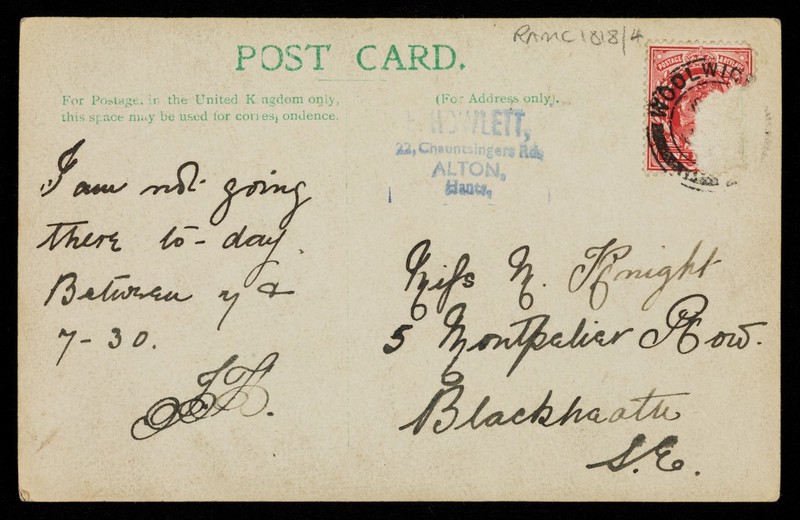 RAMC 1818/4
POST CARD.
For Postage in the United Kingdom only,
this space may be used for correspondence.
(For Address only).
HOWLETT,
22, Chauntsingers Rd,
ALTON,
Hants.
POSTAGE
WOOLWICH
I am not going
there to-day.
Between 7 &
7-30.
Miss N. Knight
5 Montpelier Row.
Blackheath
S.E.